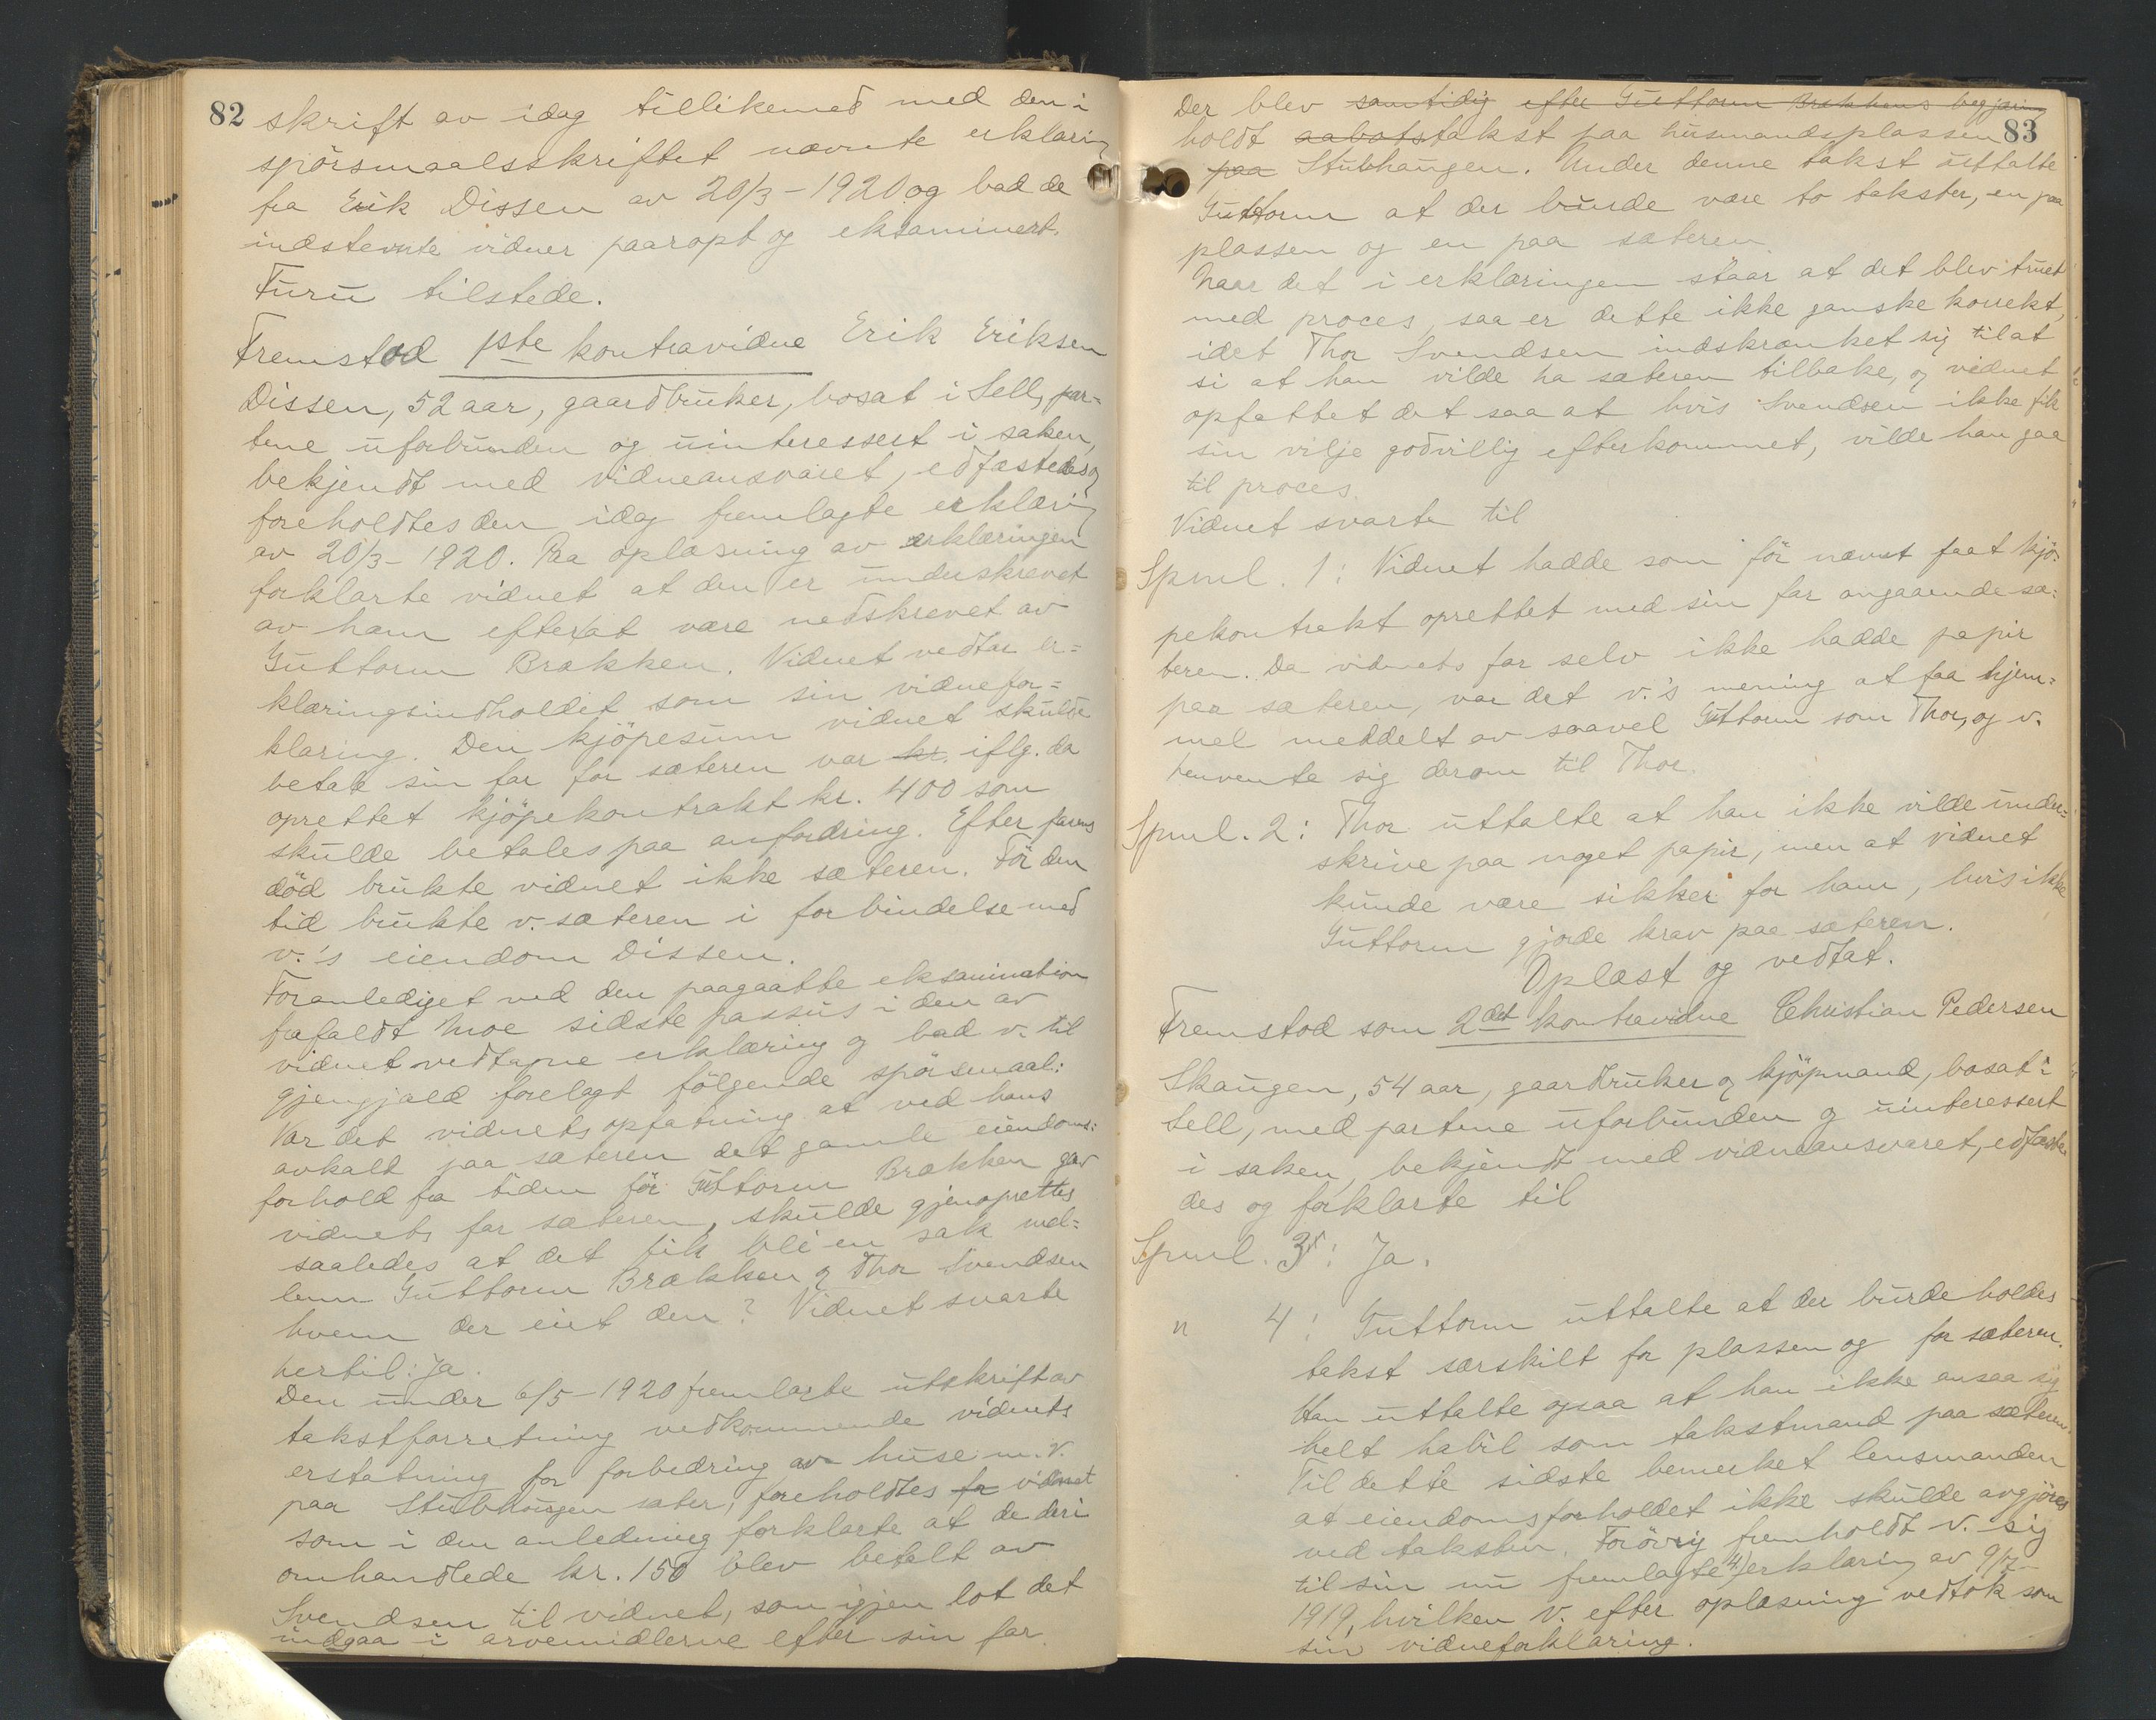 82
skrift av idag tillikemed med den i
spörsmaalsskriftet nævnte erklæring
fra Erik Dissen av 20/3-1920 og bad de
indstevnte vidner paaropt og eksaminert.
Furu tilstede.
Fremstod 1ste kontravidne Erik Eriksen
Dissen, 52 aar, gaardbruker, bosat i Sell, par=
tene uforbunden og uinteressert i saken,
bekjendt med vidneansvaret, edfæstedes og
foreholdtes den idag fremlagte erklæring
av 20/3-1920. Paa oplæsning av erklæringen
forklarte vidnet at den er underskrevet
av ham efter at være nedskrevet av
Guttorm Brækken. Vidnet vedtar er=
klæringsindholdet som sin vidnefor=
klaring. Den kjöpesum vidnet skulde
betale sin far for sæteren var kr. iflg. da
oprettet kjöpekontrakt kr. 400 som
skulde betales paa anfordring. Efter farens
död brukte vidnet ikke sæteren. För den
tid brukte v. sæteren i forbindelse med
v.'s eiendom Dissen.
Foranlediget ved den paagaatte eksamination
frafaldt Moe sidste passus i den av
vidnet vedtagne erklæring og bad v. til
gjengjæld forelagt fölgende spörsmaal:
Var det vidnets opfatning at ved hans
avkalt paa sæteren det gamle eiendoms=
forhold fra tiden för Guttorm Brækken gav
vidnets far sæteren, skulde gjenoprettes
saaledes at det fik bli en sak mel=
lem Guttorm Brækken og Thor Svendsen
hvem der eiet den? Vidnet svarte
hertil: Ja.
Den under 6/5-1920 fremlagte utskrift av
takstforretning vedkommende vidnets
erstatning for forbedring av huse m.v.
paa Stubhaugen sæter, foreholdtes for vidnet
som i den anledning forklarte at de deri
omhandlede kr. 150 blev betalt av
Svendsen til vidnet, som igjen lot det
indgaa i arvemidlerne efter sin far.
83
Der blev samtidig efter Guttorm Brækkens begjæring
holdt aabotstakst paa husmandsplassen
paa Stubhaugen. Under denne takst uttalte
Guttorm at der burde være to takster, en paa
plassen og en paa sæteren.
Naar det i erklæringen staar at det blev truet
med proces, saa er dette ikke ganske korrekt,
idet Thor Svendsen indskrænket sig til at
si at han vilde ha sæteren tilbake, og vidnet
opfattet det saa at hvis Svendsen ikke fik
sin vilje godvillig efterkommet, vilde han gaa
til proces.
Vidnet svarte til
Spml. 1: Vidnet hadde som för nævnt faat kjö=
pekontrakt oprettet med sin far angaaende sæ=
teren. Da vidnets far selv ikke hadde papir
paa sæteren, var det v.'s mening at faa hjem=
mel meddelt av saavel Guttorm som Thor, og v.
henvente sig derom til Thor.
Spml. 2: Thor uttalte at han ikke vilde under=
skrive paa noget papir, men at vidnet
kunde være sikker for ham, hvis ikke
Guttorm gjorde krav paa sæteren.
Oplæst og vedtat.
Fremstod som 2det kontravidne Christian Pedersen
Skaugen, 54 aar, gaardbruker og kjöpmand, bosat i
Sell, med partene uforbunden og uinteressert
i saken, bekjendt med vidneansvaret, edfæste=
des og forklarte til
Spml. 3: Ja.
" 4: Guttorm uttalte at der burde holdes
takst særskilt for plassen og for sæteren.
Han uttalte ogsaa at han ikke ansaa sig
helt habil som takstmand paa sæteren.
Til dette sidste bemerket lensmanden
at eiendomsforholdet ikke skulde avgjöres
ved taksten. Forövrig fremholdt v. sig
til sin nu fremlagte 14) erklæring av 9/12-
1919, hvilken v. efter oplæsning vedtok som
sin vidneforklaring.